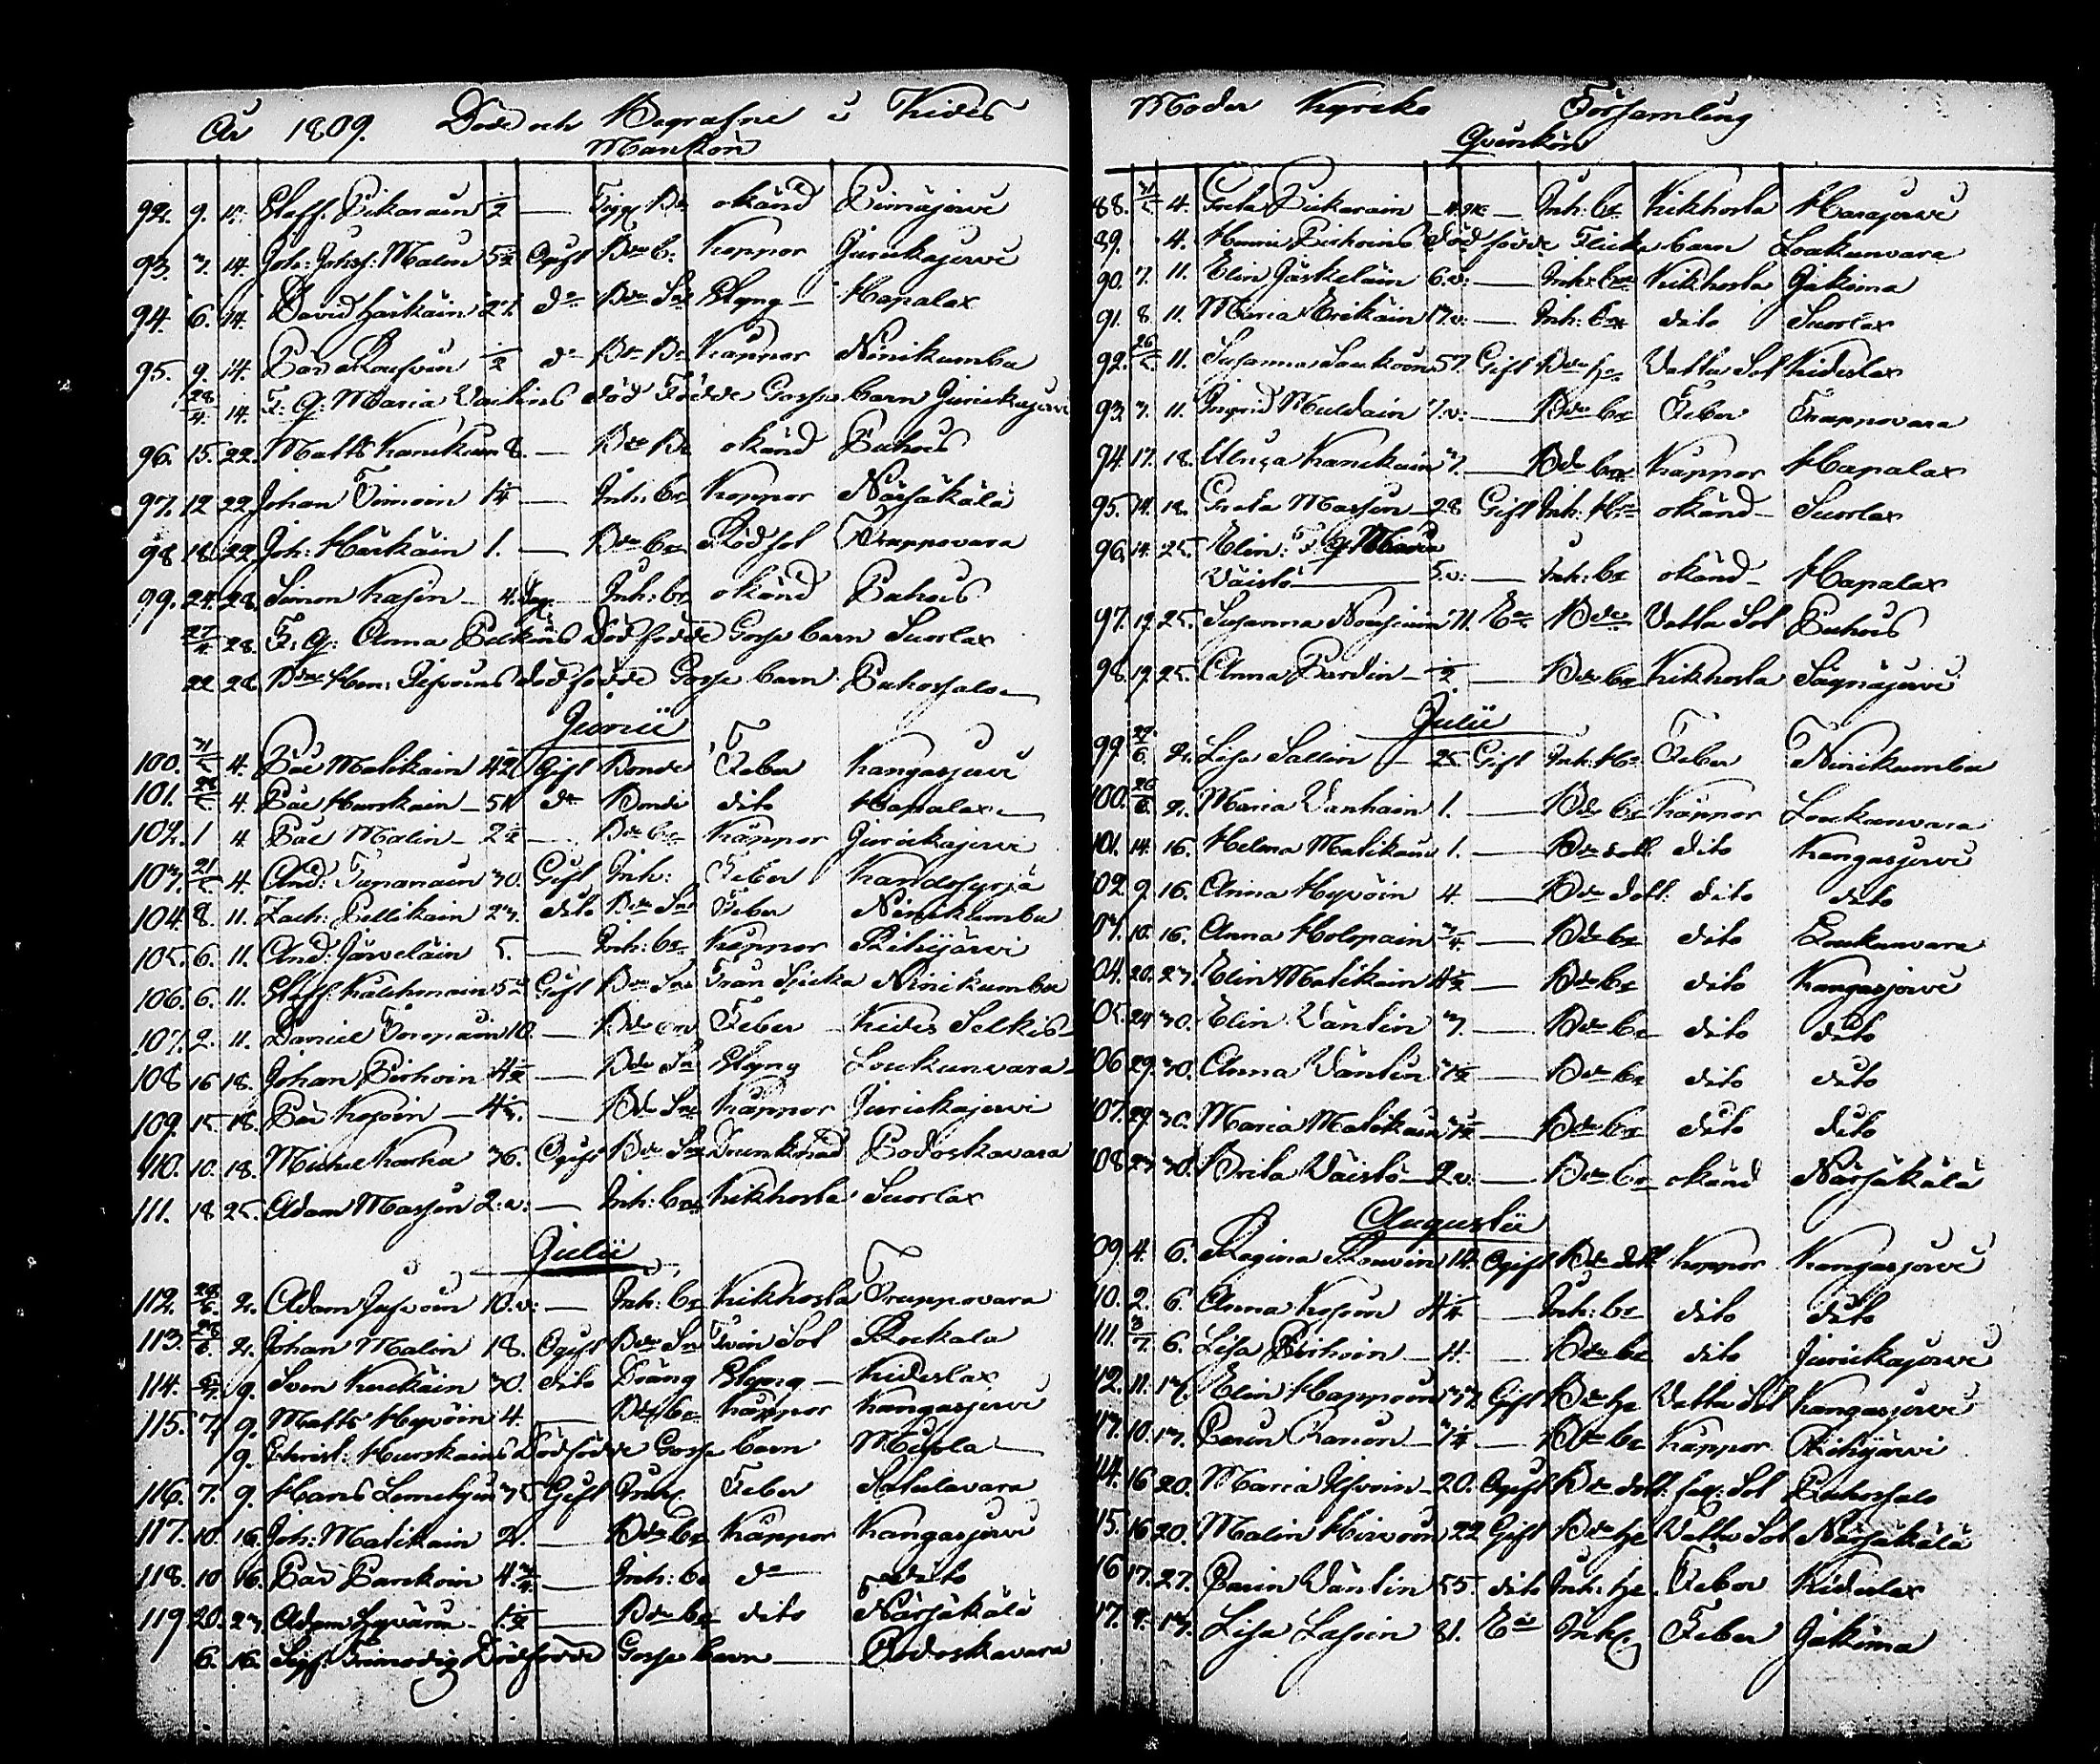 År 1809. Döde och Begrafne i Kides
Mankön
92. 9. 14. Staff. Pikarain 1/2 — okänd Piimäjervi
93. 3. 14. Joh: Johsf: Malin 5 1/2 Ogift Bde b. Koppor Juurikajervi
94. 6. 14. David Härkäin 27. do Bde Sn Styng — Hapalax
95. 9. 14. Pär Rouvun 1/2 do Bde Bn Kåppor Niinikumbu
28/4 14. F: q: Maria Död Födde Gosse barn Juurikajervi
96. 15. 22. Matts Karvikain 8. — Bde Bn okänd Puhois
97. 12 22 Johan Timoin 1 1/4 — Inh: bn Koppor Närsäkälä
98 18. 22. Joh: Härkäin 1. — Bde bn Rödsot Frappovara
99. 24. 28. Simon Kasin — 4. Dag. Inh: bn okänd Puhois
27/4 28. F: q: Anna Pelkins Dödfödde Gosse barn Suorlax
22 28. Bde Hen: Ifvoins Dödfödde Gosse barn Puhossalo
Junii
100. 31/5 4. Påe Matikain 42 Gift Bonde Feber Kangasjervi
101. 28/5 4. Påe Hurskain — 51 do Bonde dito Hapalax
102. 1 4 Påe Malin — 2 1/2 — Bde bn Kåppor Juurikajervi
103. 21/5 4. And: Tupanain 30. Gift Inh: Feber Kandosyrjä
104. 8. 11. Zach: Pellikain 23. dito Bde Sn Feber Niinikumbu
105. 6. 11. And: Järveläin 5. — Inh: bn Koppor Rihijärvi
106. 6. 11. Staff: Kälehmain 52 Gift Bde Sn Niinikumbu
107. 2. 11. Daniel Toropain 10. — Bde bn Feber Kides Selkis
108 16 18. Johan Pirhoin 4 1/2 — Bde Sn Styng Loukunvara
109. 15. 18. Pär Kosoin — 4 1/3. — Bde Sn Kåppor Juurikajervi
110. 10. 18. Michel Karha 36. Ogift Bde Sn Drunknad Podoskavara
111. 18 25. Adam Massin 2. v: — Inh: bn Kikhosta Suorlax
Julii
112. 28/6. 2. Adam Jufvoin 10. v: — Inh: bn Kikhosta Fruppovara
113. 28/6. 2. Johan Malin 18. Ogift Bde Sn Tvin Sot Ruokala
114. 9. Sven Kurikäin 30. dito Dräng Styng — Kideslax
115. 7. 9. Matts Hyvöin 4. — Bde bn Kåppor Kangasjervi
9. Christ: Hurskains Dödfödde Gosse barn Muljola
116. 7. 9. Hans Lemetyin 75 Gift Inh: Feber
117. 10. 16. Joh: Matikain 2. — Bde bn Kåppor Kangasjervi
118. 10 16. Pär Parikoin 4. 3/4 — Inh: bn do dito
119 20. 23. Adam Hyvärin 1 1/2 — Bde bn dito Närsäkälä
6. 16. Trimodig Dödfödde Gosse barn — Podoskavara
Moder Kyrko Församling
Qvinkön
88. 31/5 4. Greta Pickarain — Inh: bn Kikhosta Harajervi
89. 4. Henric Pirhoins Död födde Flicke barn Loukunvara
90. 7. 11. Elin Jäskeläin 6. v: — Inh: bn Kikhosta Jakima
91. 8. 11. Maria Eriikäin 17. v: — Inh: bn dito Suorlax
92. 26/5 11. Susanna Soukoin 57. Gift Bde H. Vattu Sot Kideslax
93. 3. 11. Ingrid Muldain 7. v: — Bde bn Feber Frappovara
94. 17. 18. Ulrica Kanikain 3. — Bde bn Kåppor Hapalax
95. 14. 18. Greta Massin — 28 Gift Inh: H: okänd — Suorlax
96. 14. 25. Elin: F: q: Maria
Väistö — 5. v: — Inh: bn okänd — Hapalax
97. 19. 25. Susanna Nousiain 71. Ea Bde Vattu Sot Puhois
98. 19. 25. Anna Pardin — 1/2 — Bde bn Kikhosta Säynäjervi
Julii
99. 29/6. 2. Lisa Sallin — 25 Gift Inh: H: Feber Niinikumbu
100. 26/6. 2. Maria Vanhain 1. — Bde bn Kåppor Loukunvara
101. 14. 16. Helena Matikain 1. — Bde dott. dito Kangasjervi
102. 9. 16. Anna Hyvöin 4. — Bde dott: dito dito
103. 10. 16. Anna Holopain 3/4. — Bde bn dito Loukunvara
104. 20. 23. Elin Matikain 4 1/2 — Bde bn dito Kangasjervi
105. 24 30. Elin Väntin 3. — Bde bn dito dito
106 29. 30. Anna Väntin 7 1/2 — Bde bn dito dito
107. 29. 30. Maria Matikain 3 1/2 — Bde bn dito dito
108 23 30. Brita Väistö — 2 v: — Bde bn okänd Närsäkälä
Augustii
109. 4. 6. Regina Rouvin 14. Ogift Bde dott Koppor Kangasjervi
10. 2. 6. Anna Kosoin 4 1/4 — Inh: bn dito dito
11. 3/7 6. Lisa Pirhoin — 4. — Bde bn dito Juurikajervi
12. 11. 13. Elin Happoin 37 Gift Bde H. Vattu Sot Kangasjervi
13. 10. 13. Carin Ranoin — 3 1/4 — Bde bn Kåppor Rihijärvi
114. 16 20. Maria Ifvoin — 20. Ogift Bde dott. Sot Puhossalo
15. 16 20. Malin Hirvoin 22 Gift Bde H. Vattu Sot Närsäkälä
16 17. 27. Carin Väntin 55. dito Inh: H. Feber Kideslax
17. 9. 13. Lisa Lasoin 81. Ea Inh: Feber Jakima